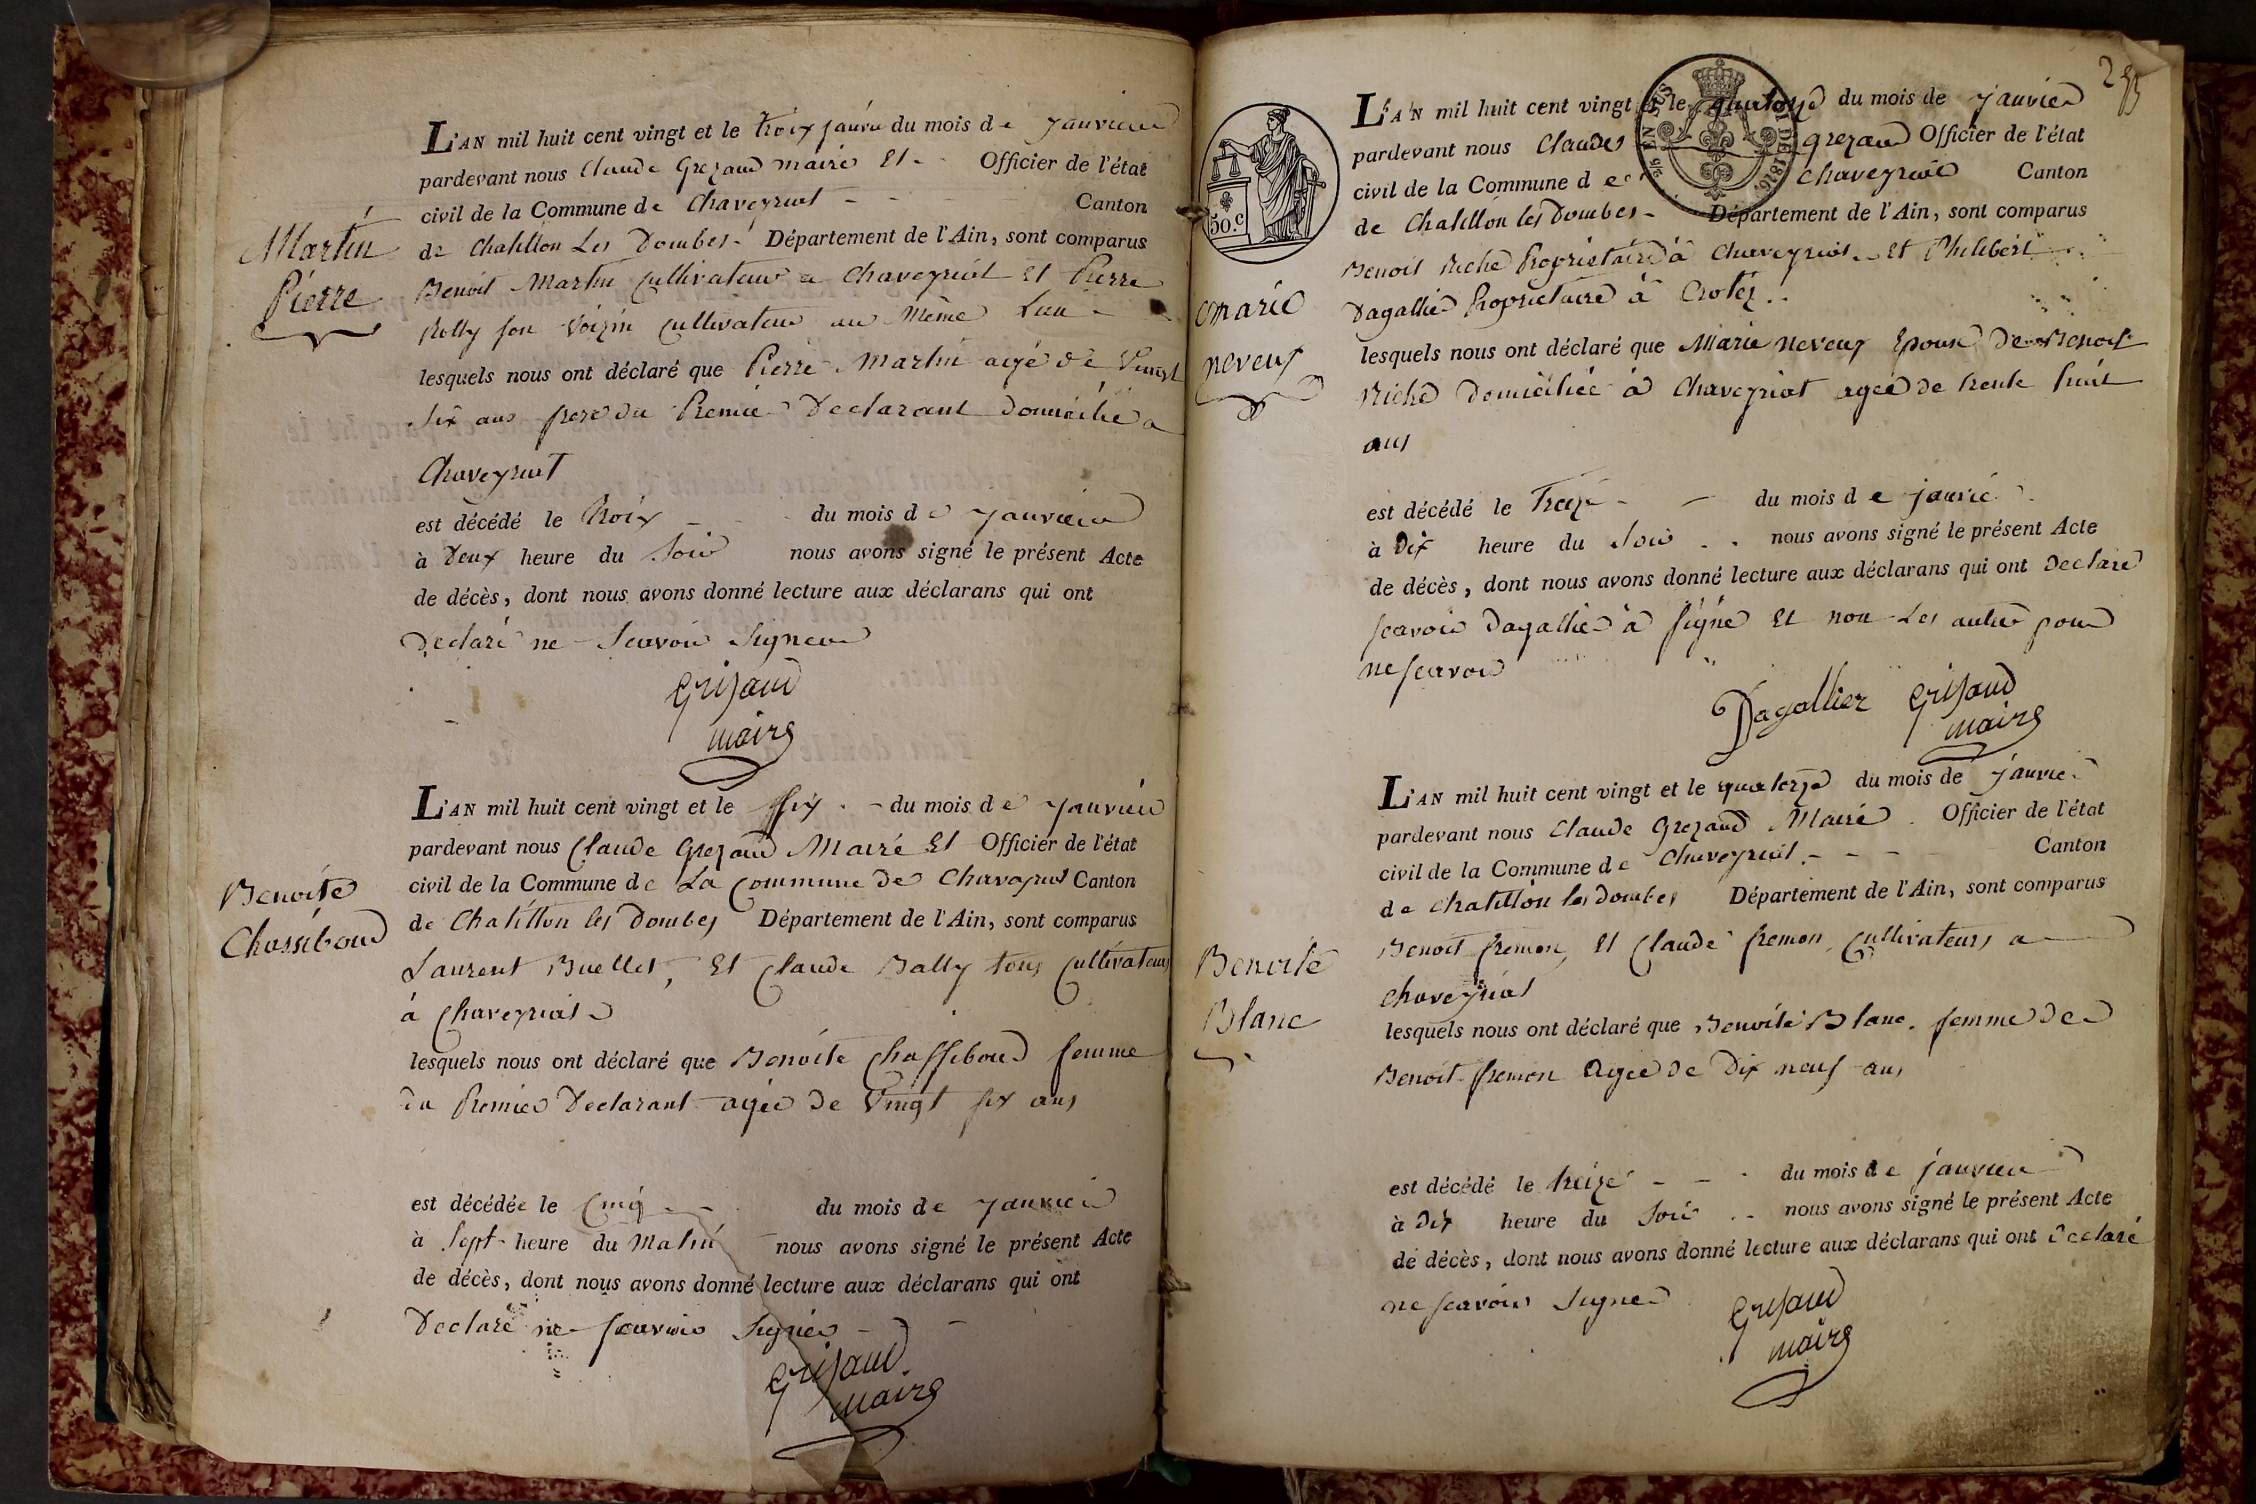 Martin
Pierre
L'AN mil huit cent vingt et le troix janvié du mois de janvier
pardevant nous Claude Grezaud maire Et - Officier de l'état
civil de la Commune de Chaveyriat - - - Canton
de Chatillon Les Dombes - Département de l'Ain, sont comparus
Benoit Martin Cultivateur a Chaveyriat Et Pierre
son Voizin cultivateur au Même Lieu -
lesquels nous ont déclaré que Pierre Martin agé de Vingt
Six ans frere du Premier Declarant domicilié a
Chaveyriat
est décédé le troix - - - du mois de janvier
à Deux heure du Soir nous avons signé le présent Acte
de décès, dont nous avons donné lecture aux déclarans qui ont
Declaré ne Scavoir Signer
Grisaud
maire
Benoite
Chassiboud
L'AN mil huit cent vingt et le six - du mois de janvier
pardevant nous Claude Grezaud Maire Et Officier de l'état
civil de la Commune de La Commune de Canton
de Chatillon les Dombes Département de l'Ain, sont comparus
Laurent Buellet, Et Claude Bally tous Cultivateurs
à Chaveyriat
lesquels nous ont déclaré que Benoite Chassiboud femme
du Premier Declarant agée de Vingt six ans
est décédée le Cinq - - du mois de janvier
à Sept heure du Matin nous avons signé le présent Acte
de décès, dont nous avons donné lecture aux déclarans qui ont
Declaré ne scavoir Signer -
Grisaud
maire
50.c
EN SUS
DE 1816.
Marie
neveux
L'AN mil huit cent vingt et le quatorze du mois de janvier
pardevant nous Claude grezaud Officier de l'état
civil de la Commune de Chaveyriat Canton
de Chatillon les Dombes - Département de l'Ain, sont comparus
Benoit Riche Propriétaire à Chaveyriat - Et Philibert
Dagallier Propriétaire à Crotez
lesquels nous ont déclaré que Marie neveux Epouse de Benoit
Riche domiciliée à Chaveyriat agée de trente huit
ans
est décédé le Treize - - du mois de janvier
à Dix heure du Soir - - nous avons signé le présent Acte
de décès, dont nous avons donné lecture aux déclarans qui ont Declaré
scavoir dagallier à signé Et non Les autre pour
ne scavoir
Dagallier Grisaud
maire
Benoite
Blanc
L'AN mil huit cent vingt et le quatorze du mois de janvier
pardevant nous Claude Grezaud Maire Officier de l'état
civil de la Commune de Chaveyriat - - - Canton
de Chatillon les dombes Département de l'Ain, sont comparus
Benoit fremon, Et Claude fremon, Cultivateurs a
Chaveyriat
lesquels nous ont déclaré que Benoite Blanc femme de
Benoit fremon agée de Dix neuf ans
est décédé le treize - - - du mois de janvier
à Dix heure du Soir - - nous avons signé le présent Acte
de décès, dont nous avons donné lecture aux déclarans qui ont Declaré
ne scavoir Signer
Grisaud
maire